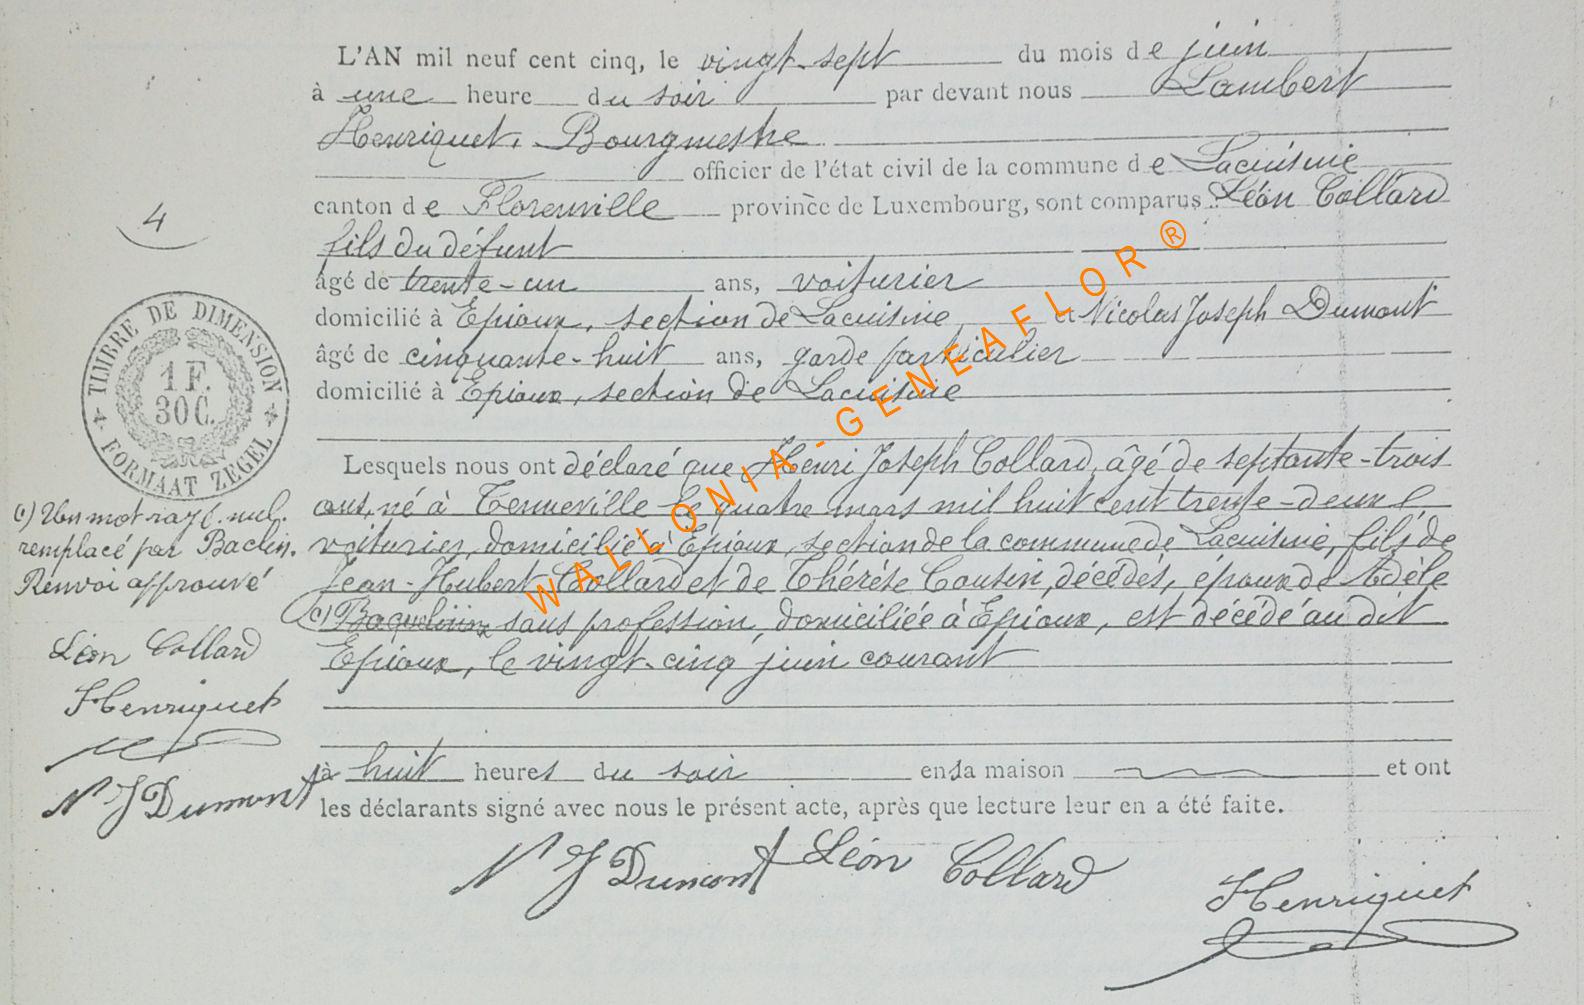 L'AN mil neuf cent cinq, le vingt-sept du mois de juin
à une heure du soir par devant nous Lambert
Henriquet, Bourgmestre
officier de l'état civil de la commune de Lacuisine
canton de Florenville province de Luxembourg, sont comparus Léon Collard
fils du défunt
âgé de trente-un ans, voiturier
domicilié à Epioux, section de Lacuisine, et Nicolas Joseph Dumont
âgé de cinquante-huit ans, garde particulier
domicilié à Epioux, section de Lacuisine
Lesquels nous ont déclaré que Henri Joseph Collard, âgé de septante-trois
ans, né à Tenneville le quatre mars mil huit cent trente-deux
voiturier, domicilié à Epioux, section de la commune de Lacuisine, fils de
Jean-Hubert Collard et de Thérèse Cousin, décédés, époux de Adèle
(1) Baquelinne sans profession, domiciliée à Epioux, est décédé au dit
Epioux, le vingt-cinq juin courant
à huit heures du soir en sa maison et ont
les déclarants signé avec nous le présent acte, après que lecture leur en a été faite.
N J Dumont Léon Collard
Henriquet
4
TIMBRE DE DIMENSION
1 F.
30 C.
FORMAAT ZEGEL
(1) Un mot rayé nul.
remplacé par Baclin.
Renvoi approuvé
Léon Collard
Henriquet
N J Dumont
WALLONIA-GENEAFLOR ®